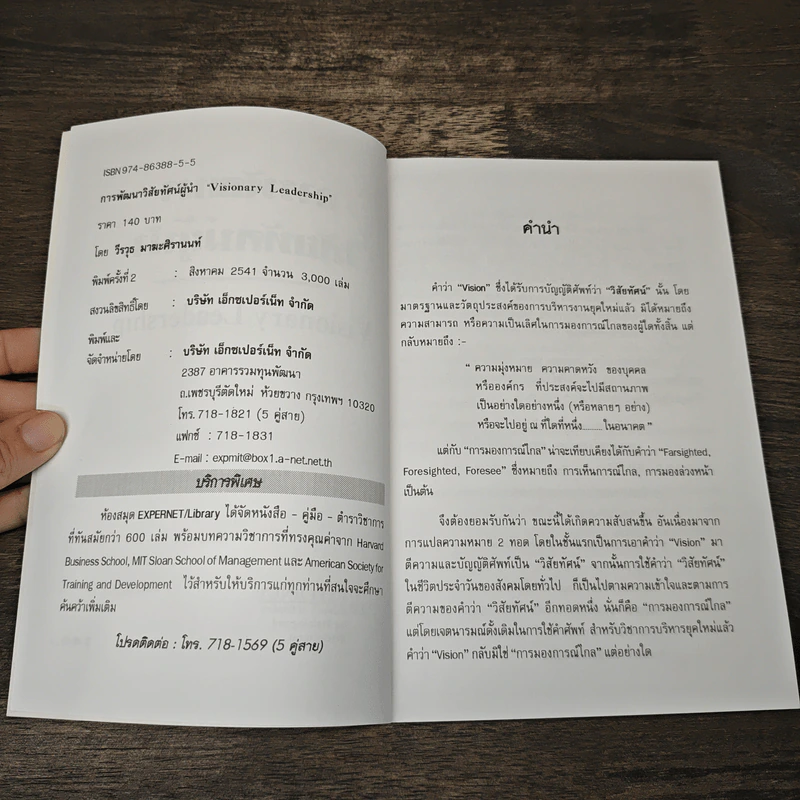 ISBN 974-86388-5-5
การพัฒนาวิสัยทัศน์ผู้นำ "Visionary Leadership"
ราคา 140 บาท
โดย วีรวุธ มาฆะศิรานนท์
พิมพ์ครั้งที่ 2 : สิงหาคม 2541 จำนวน 3,000 เล่ม
สงวนลิขสิทธิ์โดย : บริษัท เอ็กซเปอร์เน็ท จำกัด
พิมพ์และ
จัดจำหน่ายโดย : บริษัท เอ็กซเปอร์เน็ท จำกัด
2387 อาคารรวมทุนพัฒนา
ถ.เพชรบุรีตัดใหม่ ห้วยขวาง กรุงเทพฯ 10320
โทร. 718-1821 (5 คู่สาย)
แฟกซ์ : 718-1831
E-mail : expmit@box1.a-net.net.th
บริการพิเศษ
ห้องสมุด EXPERNET/Library ได้จัดหนังสือ - คู่มือ - ตำราวิชาการ
ที่ทันสมัยกว่า 600 เล่ม พร้อมบทความวิชาการที่ทรงคุณค่าจาก Harvard
Business School, MIT Sloan School of Management และ American Society for
Training and Development ไว้สำหรับให้บริการแก่ทุกท่านที่สนใจจะศึกษา
ค้นคว้าเพิ่มเติม
โปรดติดต่อ : โทร. 718-1569 (5 คู่สาย)
คำนำ
คำว่า "Vision" ซึ่งได้รับการบัญญัติศัพท์ว่า "วิสัยทัศน์" นั้น โดย
มาตรฐานและวัตถุประสงค์ของการบริหารงานยุคใหม่แล้ว มิได้หมายถึง
ความสามารถ หรือความเป็นเลิศในการมองการณ์ไกลของผู้ใดทั้งสิ้น แต่
กลับหมายถึง :-
" ความมุ่งหมาย ความคาดหวัง ของบุคคล
หรือองค์กร ที่ประสงค์จะไปมีสถานภาพ
เป็นอย่างใดอย่างหนึ่ง (หรือหลายๆ อย่าง)
หรือจะไปอยู่ ณ ที่ใดที่หนึ่ง..........ในอนาคต "
แต่กับ "การมองการณ์ไกล" น่าจะเทียบเคียงได้กับคำว่า "Farsighted,
Foresighted, Foresee" ซึ่งหมายถึง การเห็นการณ์ไกล, การมองล่วงหน้า
เป็นต้น
จึงต้องยอมรับกันว่า ขณะนี้ได้เกิดความสับสนขึ้น อันเนื่องมาจาก
การแปลความหมาย 2 ทอด โดยในชั้นแรกเป็นการเอาคำว่า "Vision" มา
ตีความและบัญญัติศัพท์เป็น "วิสัยทัศน์" จากนั้นการใช้คำว่า "วิสัยทัศน์"
ในชีวิตประจำวันของสังคมโดยทั่วไป ก็เป็นไปตามความเข้าใจและตามการ
ตีความของคำว่า "วิสัยทัศน์" อีกทอดหนึ่ง นั่นก็คือ "การมองการณ์ไกล"
แต่โดยเจตนารมณ์ดั้งเดิมในการใช้คำศัพท์ สำหรับวิชาการบริหารยุคใหม่แล้ว
คำว่า "Vision" กลับมิใช่ "การมองการณ์ไกล" แต่อย่างใด